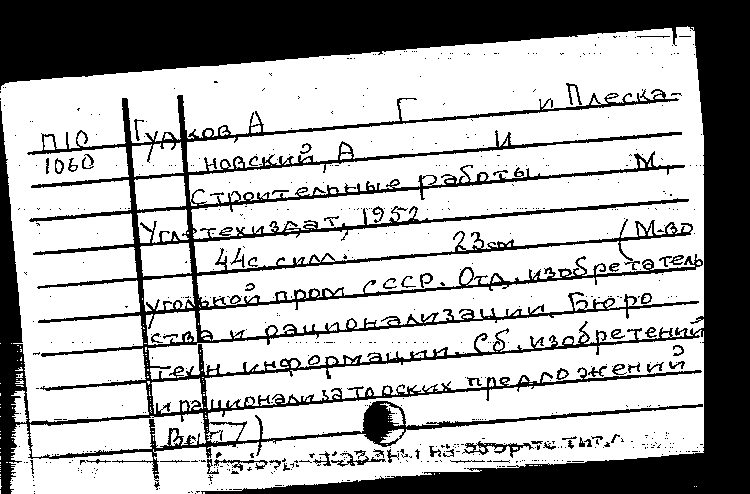 П10 Гудков, А Г и Плеска-
1060 новский, А И
Строительные работы. М.,
Углетехиздат, 1952.
44с. с илл. 23см (М-во
угольной пром СССР. Отд. изобретатель
ства и рационализации. Бюро
техн. информации. Сб. изобретений
и рационализаторских предложений
Вып 7)
Авторы указаны на обороте тит. л